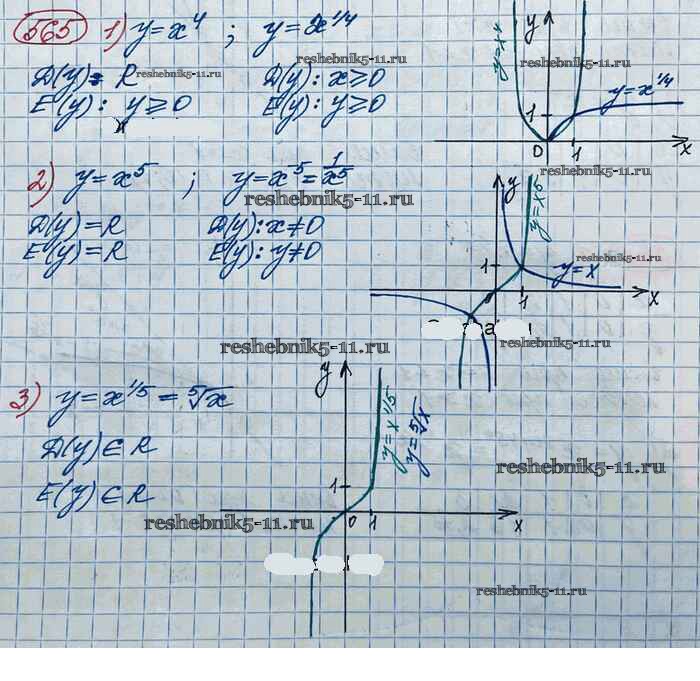 565 1) y = x⁴ ; y = x^1/4
D(y) = R reshebnik5-11.ru D(y): x ≥ 0
E(y): y ≥ 0 E(y): y ≥ 0
reshebnik5-11.ru
y
y=x⁴
y=x^1/4
1
0 1 x
reshebnik5-11.ru
2) y = x⁵ ; y = x⁻⁵ = 1/x⁵
reshebnik5-11.ru
D(y) = R D(y): x ≠ 0
E(y) = R E(y): y ≠ 0
y
y=x5
reshebnik5-11.ru
1
y=x
1 x
reshebnik5-11.ru
reshebnik5-11.ru
3) y = x^1/5 = ⁵√x
D(y) ∈ R
E(y) ∈ R
y
y=x^1/5
y=⁵√x
1
0 1 x
reshebnik5-11.ru
reshebnik5-11.ru
reshebnik5-11.ru